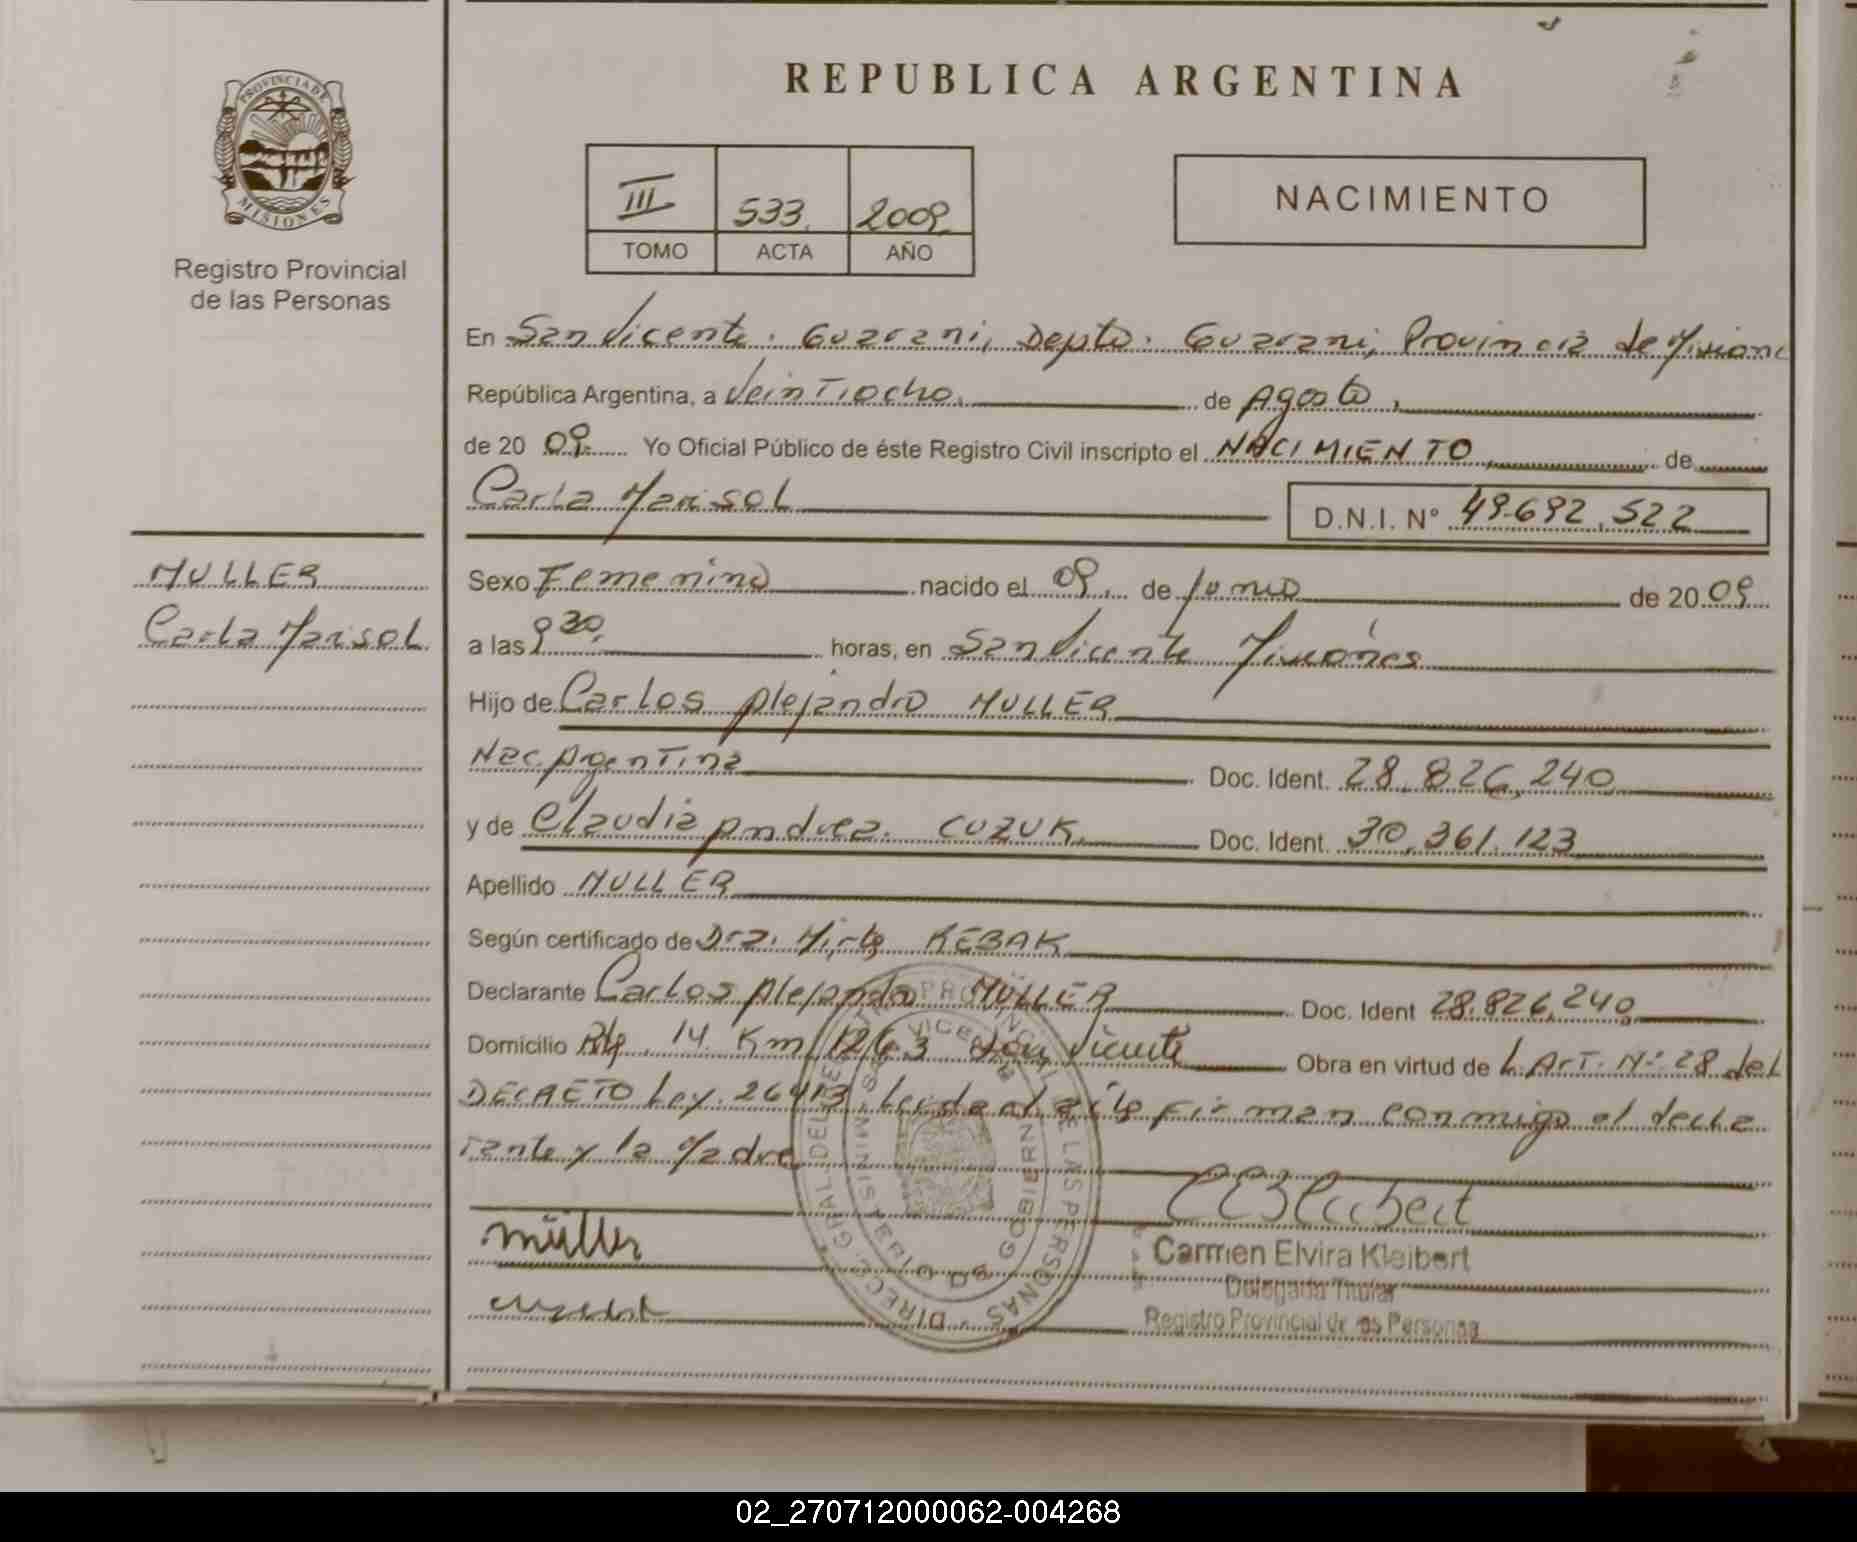 PROVINCIA DE
MISIONES
Registro Provincial
de las Personas
REPUBLICA ARGENTINA
III 533. 2009.
TOMO ACTA AÑO
NACIMIENTO
En San Vicente. Guarani, Depto. Guarani, Provincia de Misiones
República Argentina, a Veintiocho. de Agosto,
de 20 09. Yo Oficial Público de éste Registro Civil inscripto el NACIMIENTO, de
Carla Marisol D.N.I. Nº 49.692.522
MULLER
Carla Marisol
Sexo Femenino nacido el 09. de Junio de 20 09
a las 9 30. horas, en San Vicente Misiones
Hijo de Carlos Alejandro MULLER
Nac. Argentina Doc. Ident. 28.826.240
y de Claudia Andrea. CUZUK. Doc. Ident. 30.361.123
Apellido MULLER
Según certificado de Dra. Mirta REBAK
Declarante Carlos Alejandro MULLER Doc. Ident 28.826.240
Domicilio 14 Km 1263 San Vicente Obra en virtud de L. Art. Nº 28 del
DECRETO Ley. 26413. Leida el acta firman conmigo el decla
rante y la Madre
müller
Carmen Elvira Kleibert
Delegada Titular
Registro Provincial de las Personas
02_270712000062-004268